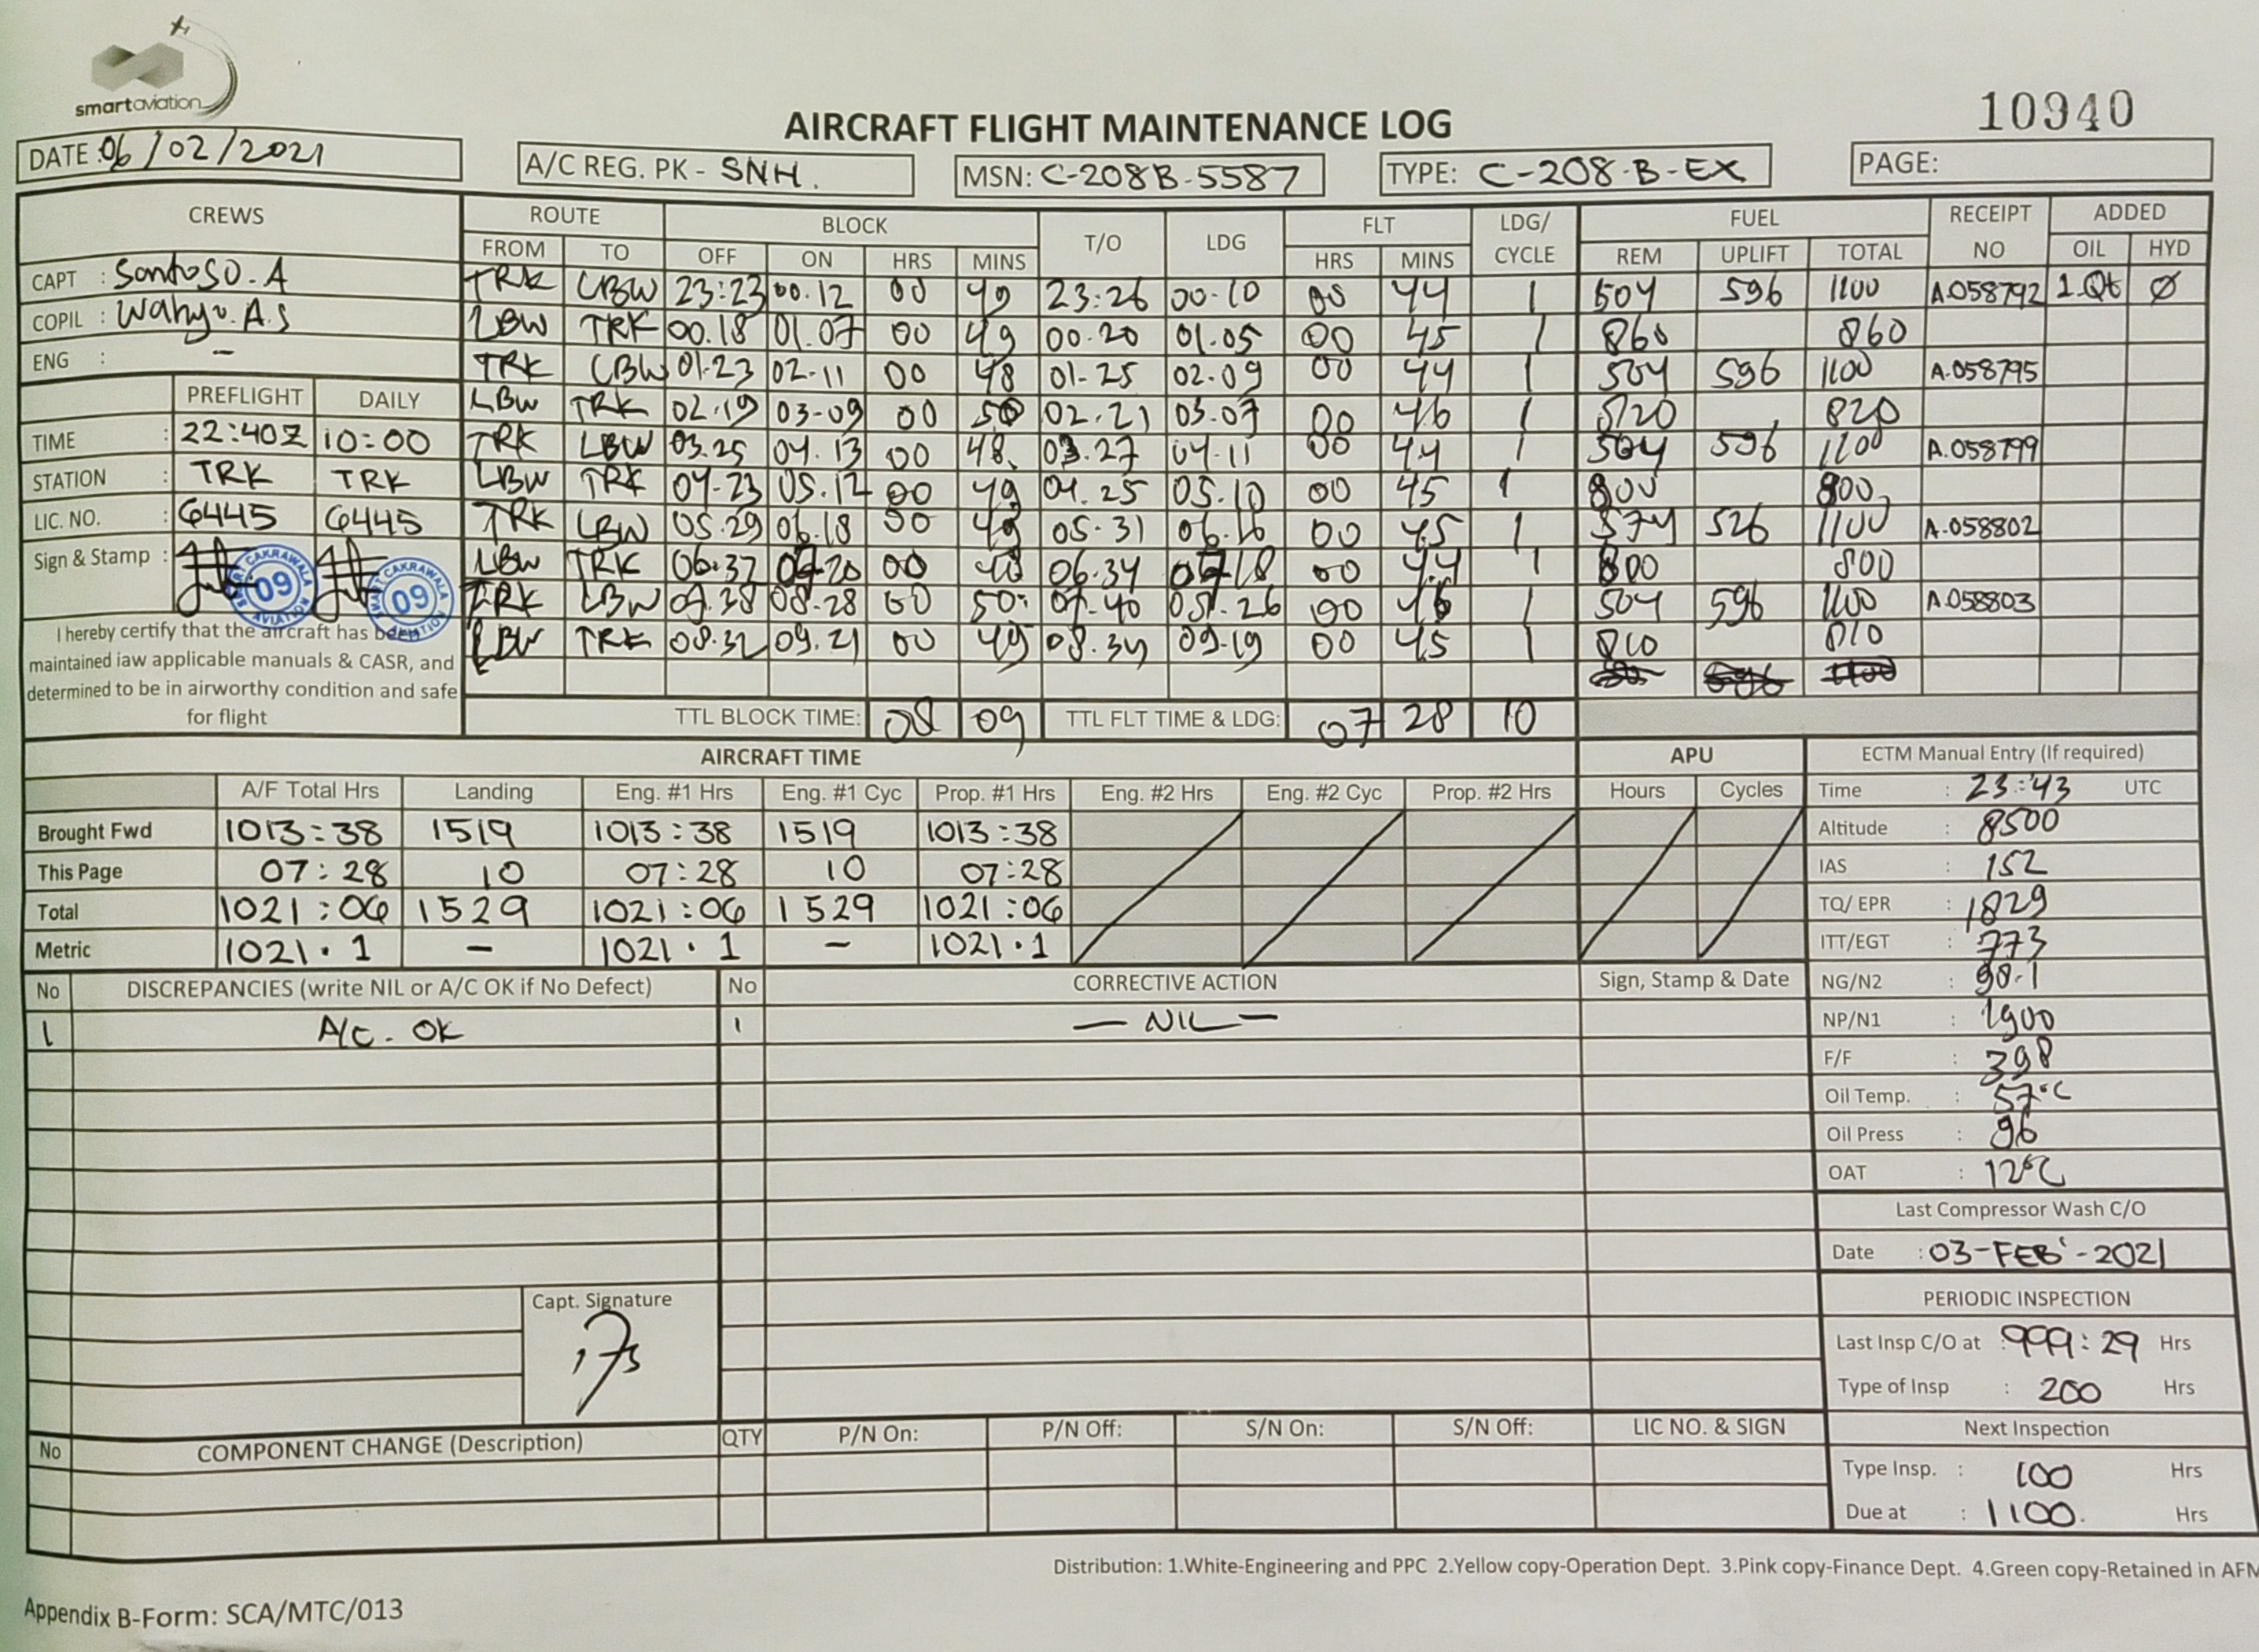 smartaviation
10940
AIRCRAFT FLIGHT MAINTENANCE LOG
DATE: 06/02/2021
A/C REG. PK - SNH.
MSN: C-208B-5587
TYPE: C-208-B-EX
PAGE:
CREWS ROUTE BLOCK T/O LDG FLT LDG/CYCLE FUEL RECEIPT NO ADDED
FROM TO OFF ON HRS MINS HRS MINS REM UPLIFT TOTAL OIL HYD
CAPT : Santoso.A
COPIL : Wahyu.A.S
ENG : -
TRK LBW 23:23 00.12 00 49 23:26 00-10 00 44 1 504 596 1100 A.058792 1.Qt Ø
LBW TRK 00.18 01.07 00 49 00.20 01.05 00 45 1 860 860
TRK LBW 01.23 02-11 00 48 01-25 02.09 00 44 1 504 596 1100 A.058795
LBW TRK 02.19 03-09 00 50 02.21 03.07 00 46 1 820 820
TRK LBW 03.25 04.13 00 48 03.27 04-11 00 44 1 504 596 1100 A.058799
LBW TRK 04-23 05.12 00 49 04.25 05.10 00 45 1 800 800
TRK LBW 05.29 06.18 00 49 05-31 06.16 00 45 1 574 526 1100 A.058802
LBW TRK 06.32 07-20 00 48 06.34 07-18 00 44 1 800 800
TRK LBW 07.38 08-28 00 50 07-40 08-26 00 46 1 504 596 1100 A.058803
LBW TRK 08.32 09.21 00 49 08.34 09-19 00 45 1 810 810
PREFLIGHT DAILY
TIME : 22:40Z 10:00
STATION : TRK TRK
LIC. NO. : 6445 6445
Sign & Stamp :
SMART CAKRAWALA AVIATION 09
SMART CAKRAWALA AVIATION 09
I hereby certify that the aircraft has been
maintained iaw applicable manuals & CASR, and
determined to be in airworthy condition and safe
for flight
TTL BLOCK TIME: 08 09 TTL FLT TIME & LDG: 07 28 10
AIRCRAFT TIME APU
A/F Total Hrs Landing Eng. #1 Hrs Eng. #1 Cyc Prop. #1 Hrs Eng. #2 Hrs Eng. #2 Cyc Prop. #2 Hrs Hours Cycles
Brought Fwd 1013:38 1519 1013:38 1519 1013:38
This Page 07:28 10 07:28 10 07:28
Total 1021:06 1529 1021:06 1529 1021:06
Metric 1021.1 - 1021.1 - 1021.1
ECTM Manual Entry (If required)
Time : 23:43 UTC
Altitude : 8500
IAS : 152
TQ/ EPR : 1829
ITT/EGT : 773
NG/N2 : 98.1
NP/N1 : 1900
F/F : 398
Oil Temp. : 57°C
Oil Press : 96
OAT : 12°C
Last Compressor Wash C/O
Date : 03-FEB'-2021
PERIODIC INSPECTION
Last Insp C/O at : 999:29 Hrs
Type of Insp : 200 Hrs
Next Inspection
Type Insp. : 100 Hrs
Due at : 1100. Hrs
No DISCREPANCIES (write NIL or A/C OK if No Defect) No CORRECTIVE ACTION Sign, Stamp & Date
1 A/C. OK 1 — NIL —
Capt. Signature
No COMPONENT CHANGE (Description) QTY P/N On: P/N Off: S/N On: S/N Off: LIC NO. & SIGN
Distribution: 1.White-Engineering and PPC 2.Yellow copy-Operation Dept. 3.Pink copy-Finance Dept. 4.Green copy-Retained in AFM
Appendix B-Form: SCA/MTC/013